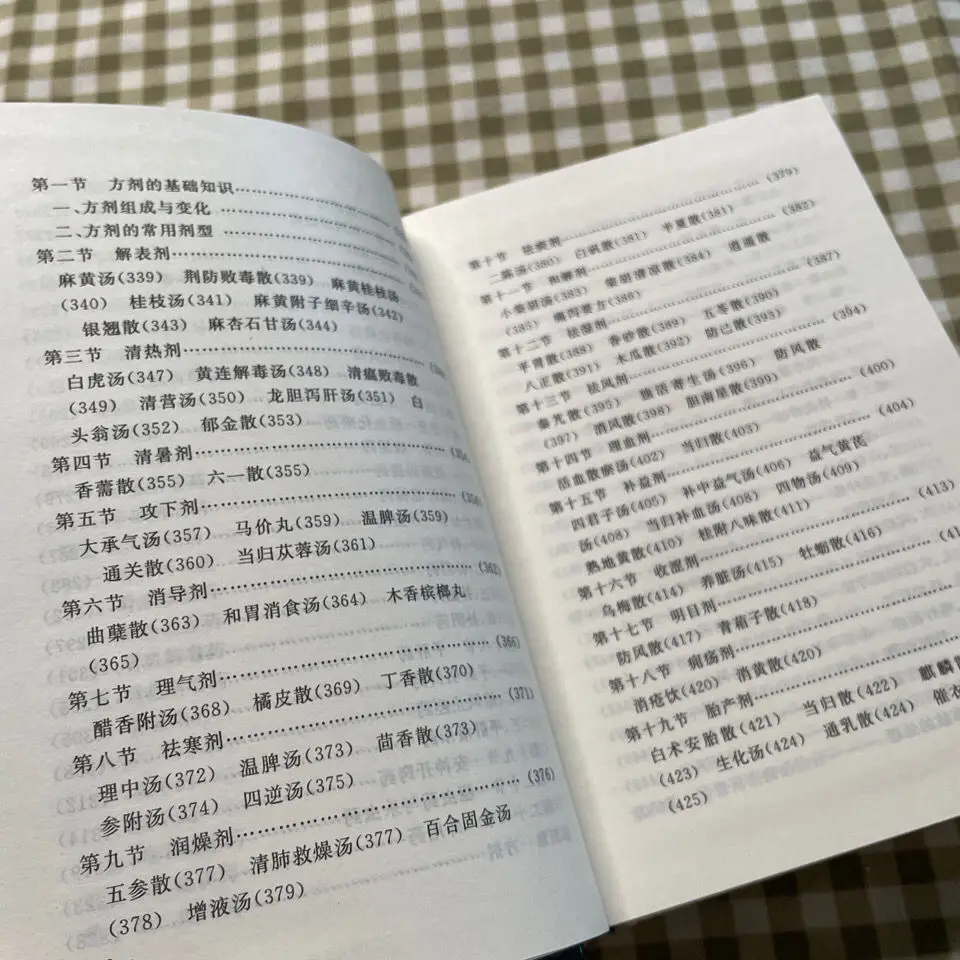 第一节 方剂的基础知识
一、方剂组成与变化
二、方剂的常用剂型
第二节 解表剂
麻黄汤(339) 荆防败毒散(339) 麻黄桂枝汤
(340) 桂枝汤(341) 麻黄附子细辛汤(342)
银翘散(343) 麻杏石甘汤(344)
第三节 清热剂
白虎汤(347) 黄连解毒汤(348) 清瘟败毒散
(349) 清营汤(350) 龙胆泻肝汤(351) 白
头翁汤(352) 郁金散(353)
第四节 清暑剂
香薷散(355) 六一散(355)
第五节 攻下剂
大承气汤(357) 马价丸(359) 温脾汤(359)
通关散(360) 当归苁蓉汤(361)
第六节 消导剂 (362)
曲蘖散(363) 和胃消食汤(364) 木香槟榔丸
(365)
第七节 理气剂 (366)
醋香附汤(368) 橘皮散(369) 丁香散(370)
第八节 祛寒剂 (371)
理中汤(372) 温脾汤(373) 茴香散(373)
参附汤(374) 四逆汤(375)
第九节 润燥剂 (376)
五参散(377) 清肺救燥汤(377) 百合固金汤
(378) 增液汤(379)
第十节 祛痰剂 (379)
二陈汤(380) 白矾散(381) 半夏散(381)
第十一节 和解剂 (382)
小柴胡汤(383) 柴胡清凉散(384) 逍遥散
(385) 痛泻要方(386)
第十二节 祛湿剂 (387)
平胃散(388) 香砂散(389) 五苓散(390)
八正散(391) 木瓜散(392) 防己散(393)
第十三节 祛风剂 (394)
秦艽散(395) 独活寄生汤(396) 防风散
(397) 消风散(398) 胆南星散(399)
第十四节 理血剂 (400)
活血散瘀汤(402) 当归散(403)
第十五节 补益剂 (404)
四君子汤(405) 补中益气汤(406) 益气黄芪
汤(408) 当归补血汤(408) 四物汤(409)
熟地黄散(410) 桂附八味散(411)
第十六节 收涩剂 (413)
乌梅散(414) 养脏汤(415) 牡蛎散(416)
第十七节 明目剂
防风散(417) 青葙子散(418)
第十八节 痈疡剂
消疮饮(420) 消黄散(420)
第十九节 胎产剂
白术安胎散(421) 当归散(422) 麒麟
(423) 生化汤(424) 通乳散(424) 催衣
(425)